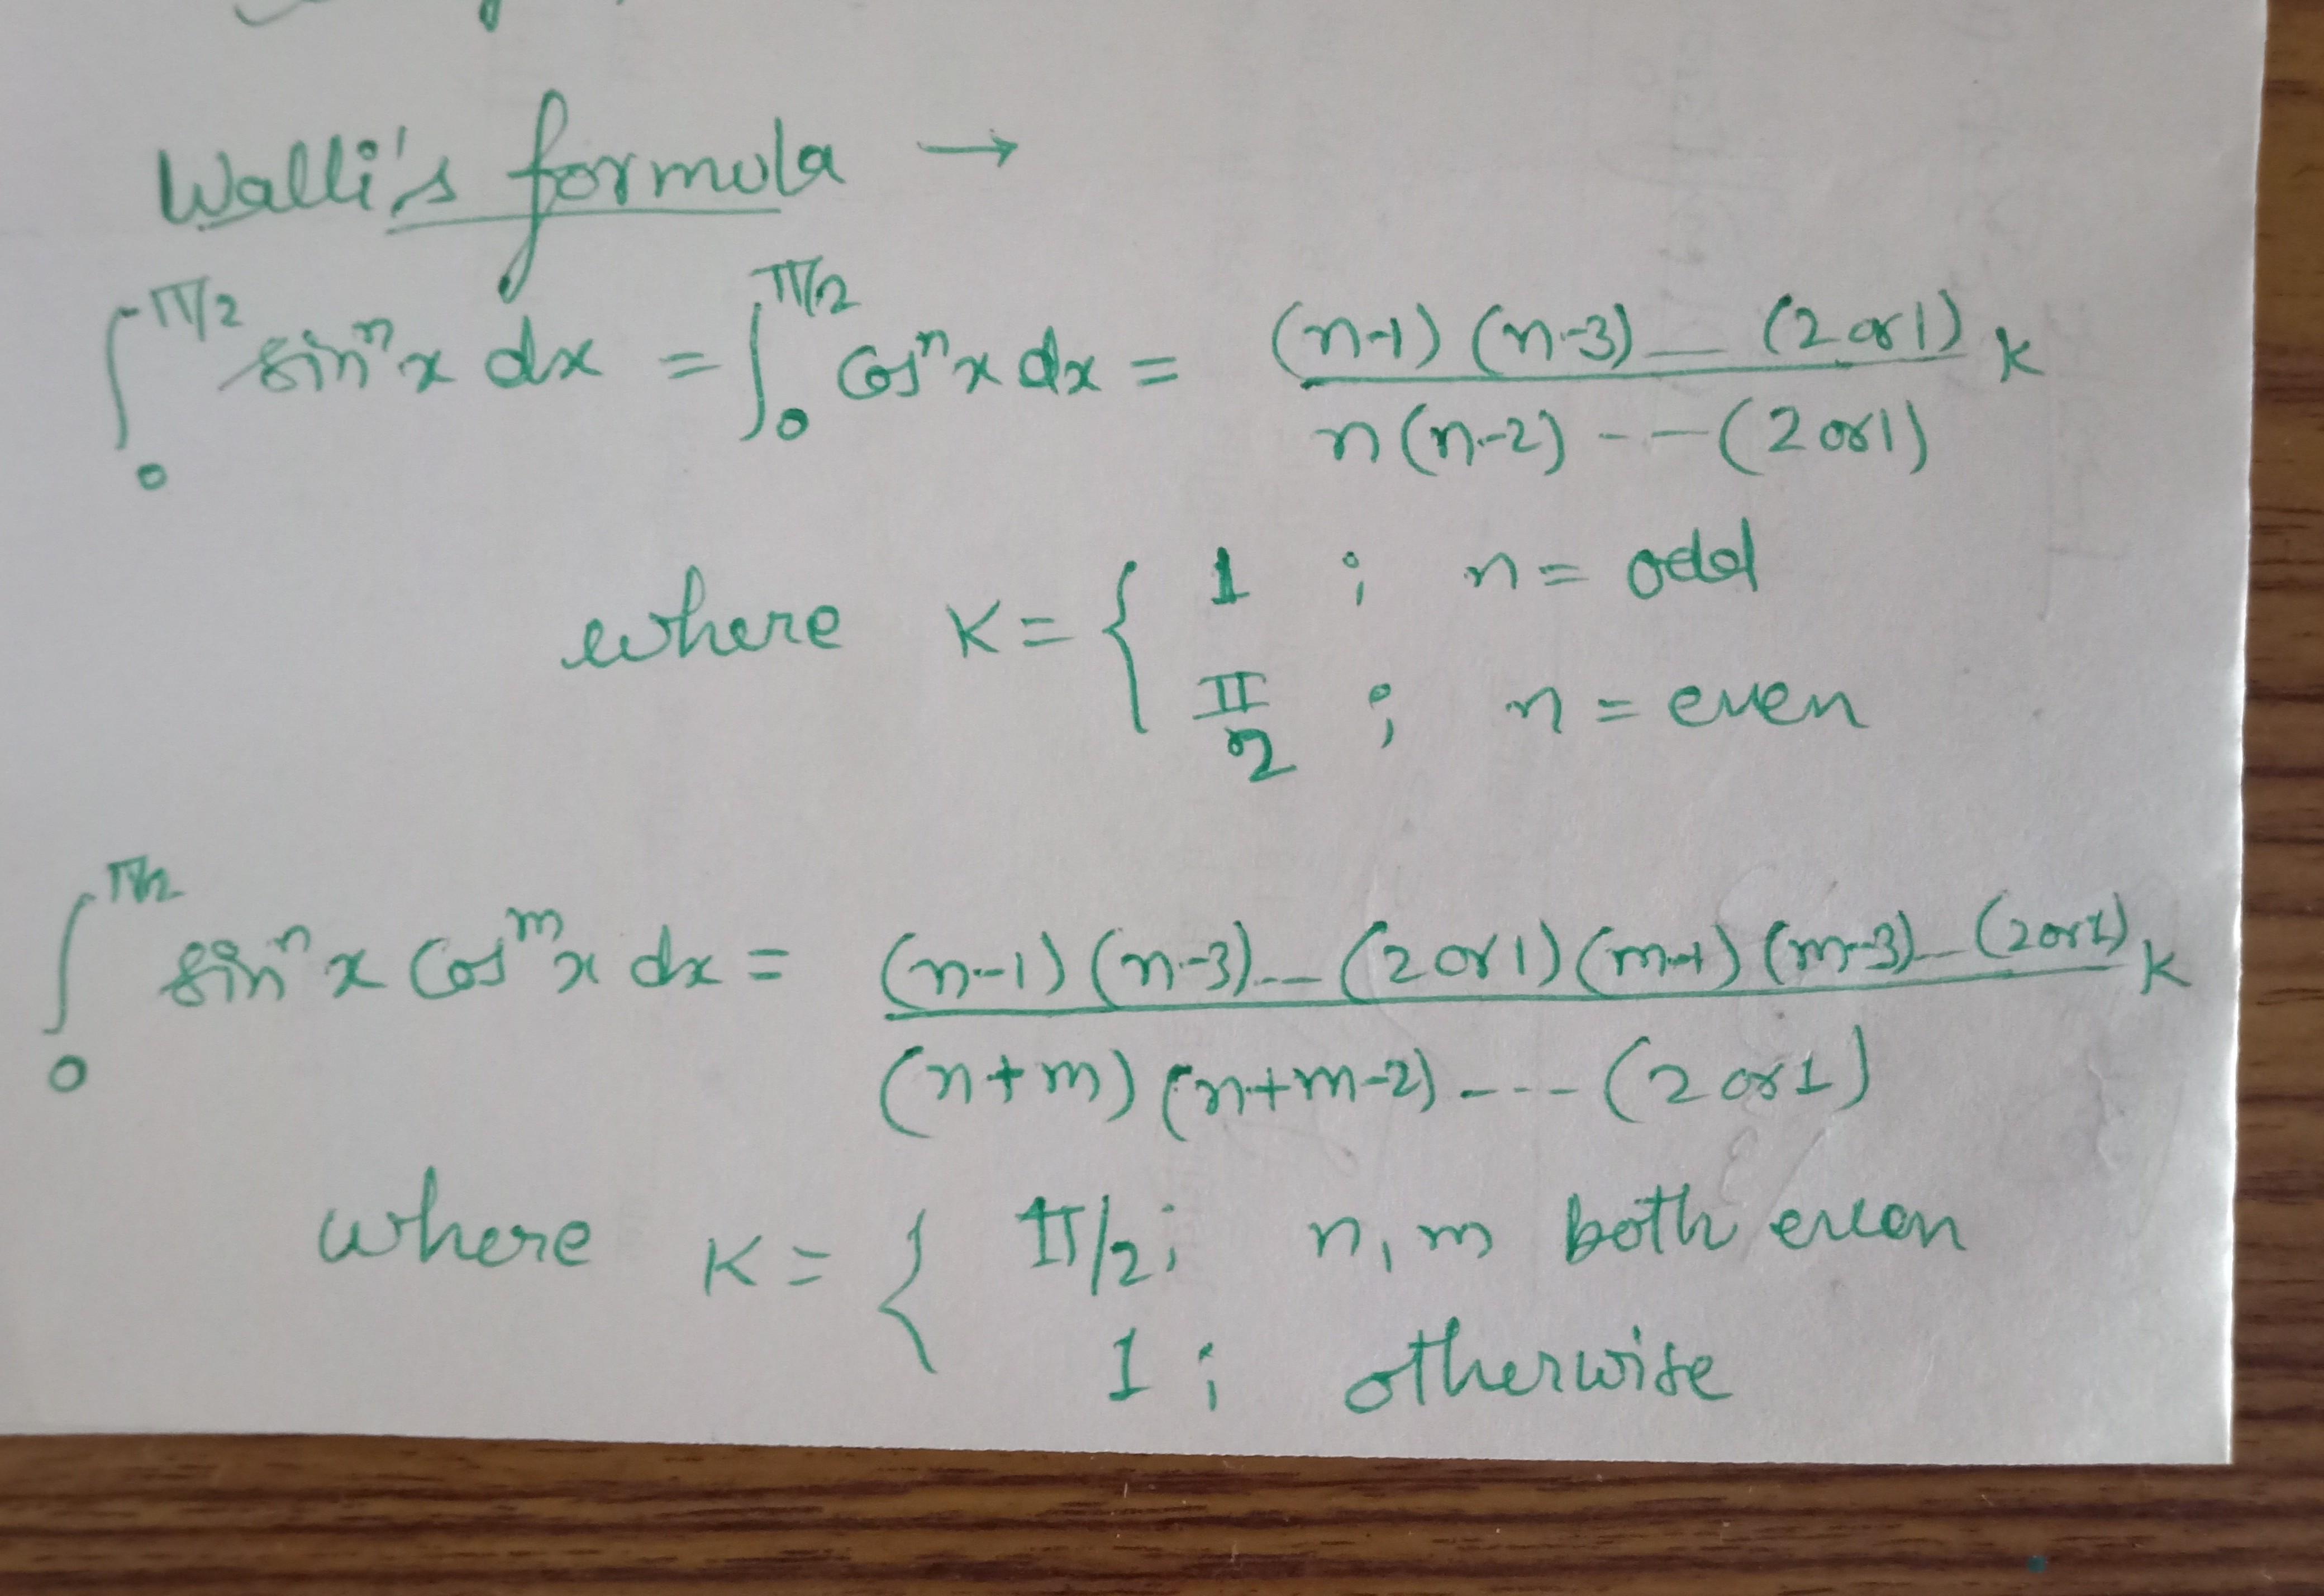 Walli's formula →
∫₀^{π/2} sinⁿx dx = ∫₀^{π/2} cosⁿx dx = (n-1)(n-3)--(2 or 1) / n(n-2)---(2 or 1) K
where K = { 1 ; n = odd
π/2 ; n = even
∫₀^{π/2} sinⁿx cosᵐx dx = (n-1)(n-3)---(2 or 1)(m-1)(m-3)--(2 or 1) / (n+m)(n+m-2)----(2 or 1) K
where K = { π/2 ; n, m both even
1 ; otherwise